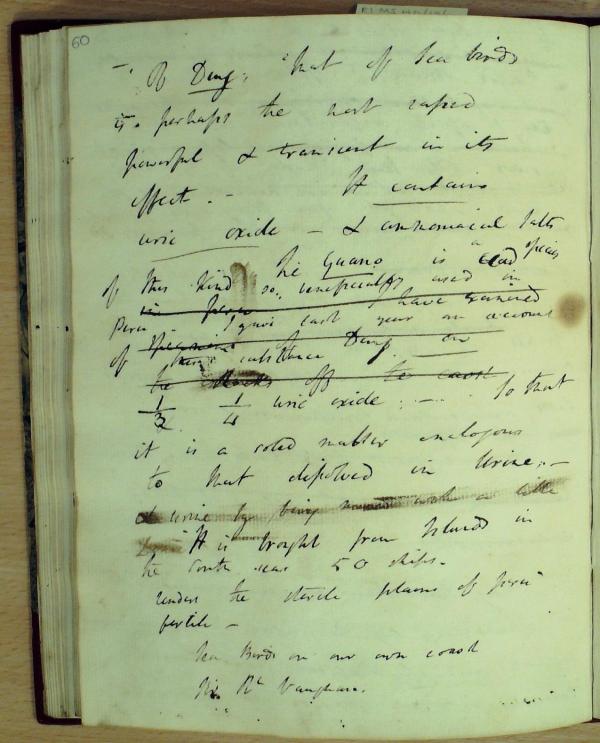 60
— Of Dung; that of Sea birds
is perhaps the most rapid
powerful & transient in its
effect. — It contains
uric oxide — & ammoniacal salts
The Guano is a species
of this kind so beneficially used in
Peru I gave last year an account
of this substance
1/3 1/4 uric oxide; — So that
it is a solid matter analogous
to that dissolved in Urine; —
It is brought from Islands in
the South seas 50 ships.
renders the sterile plains of Peru
fertile —
Sea Birds on our own coast
Vaughan.